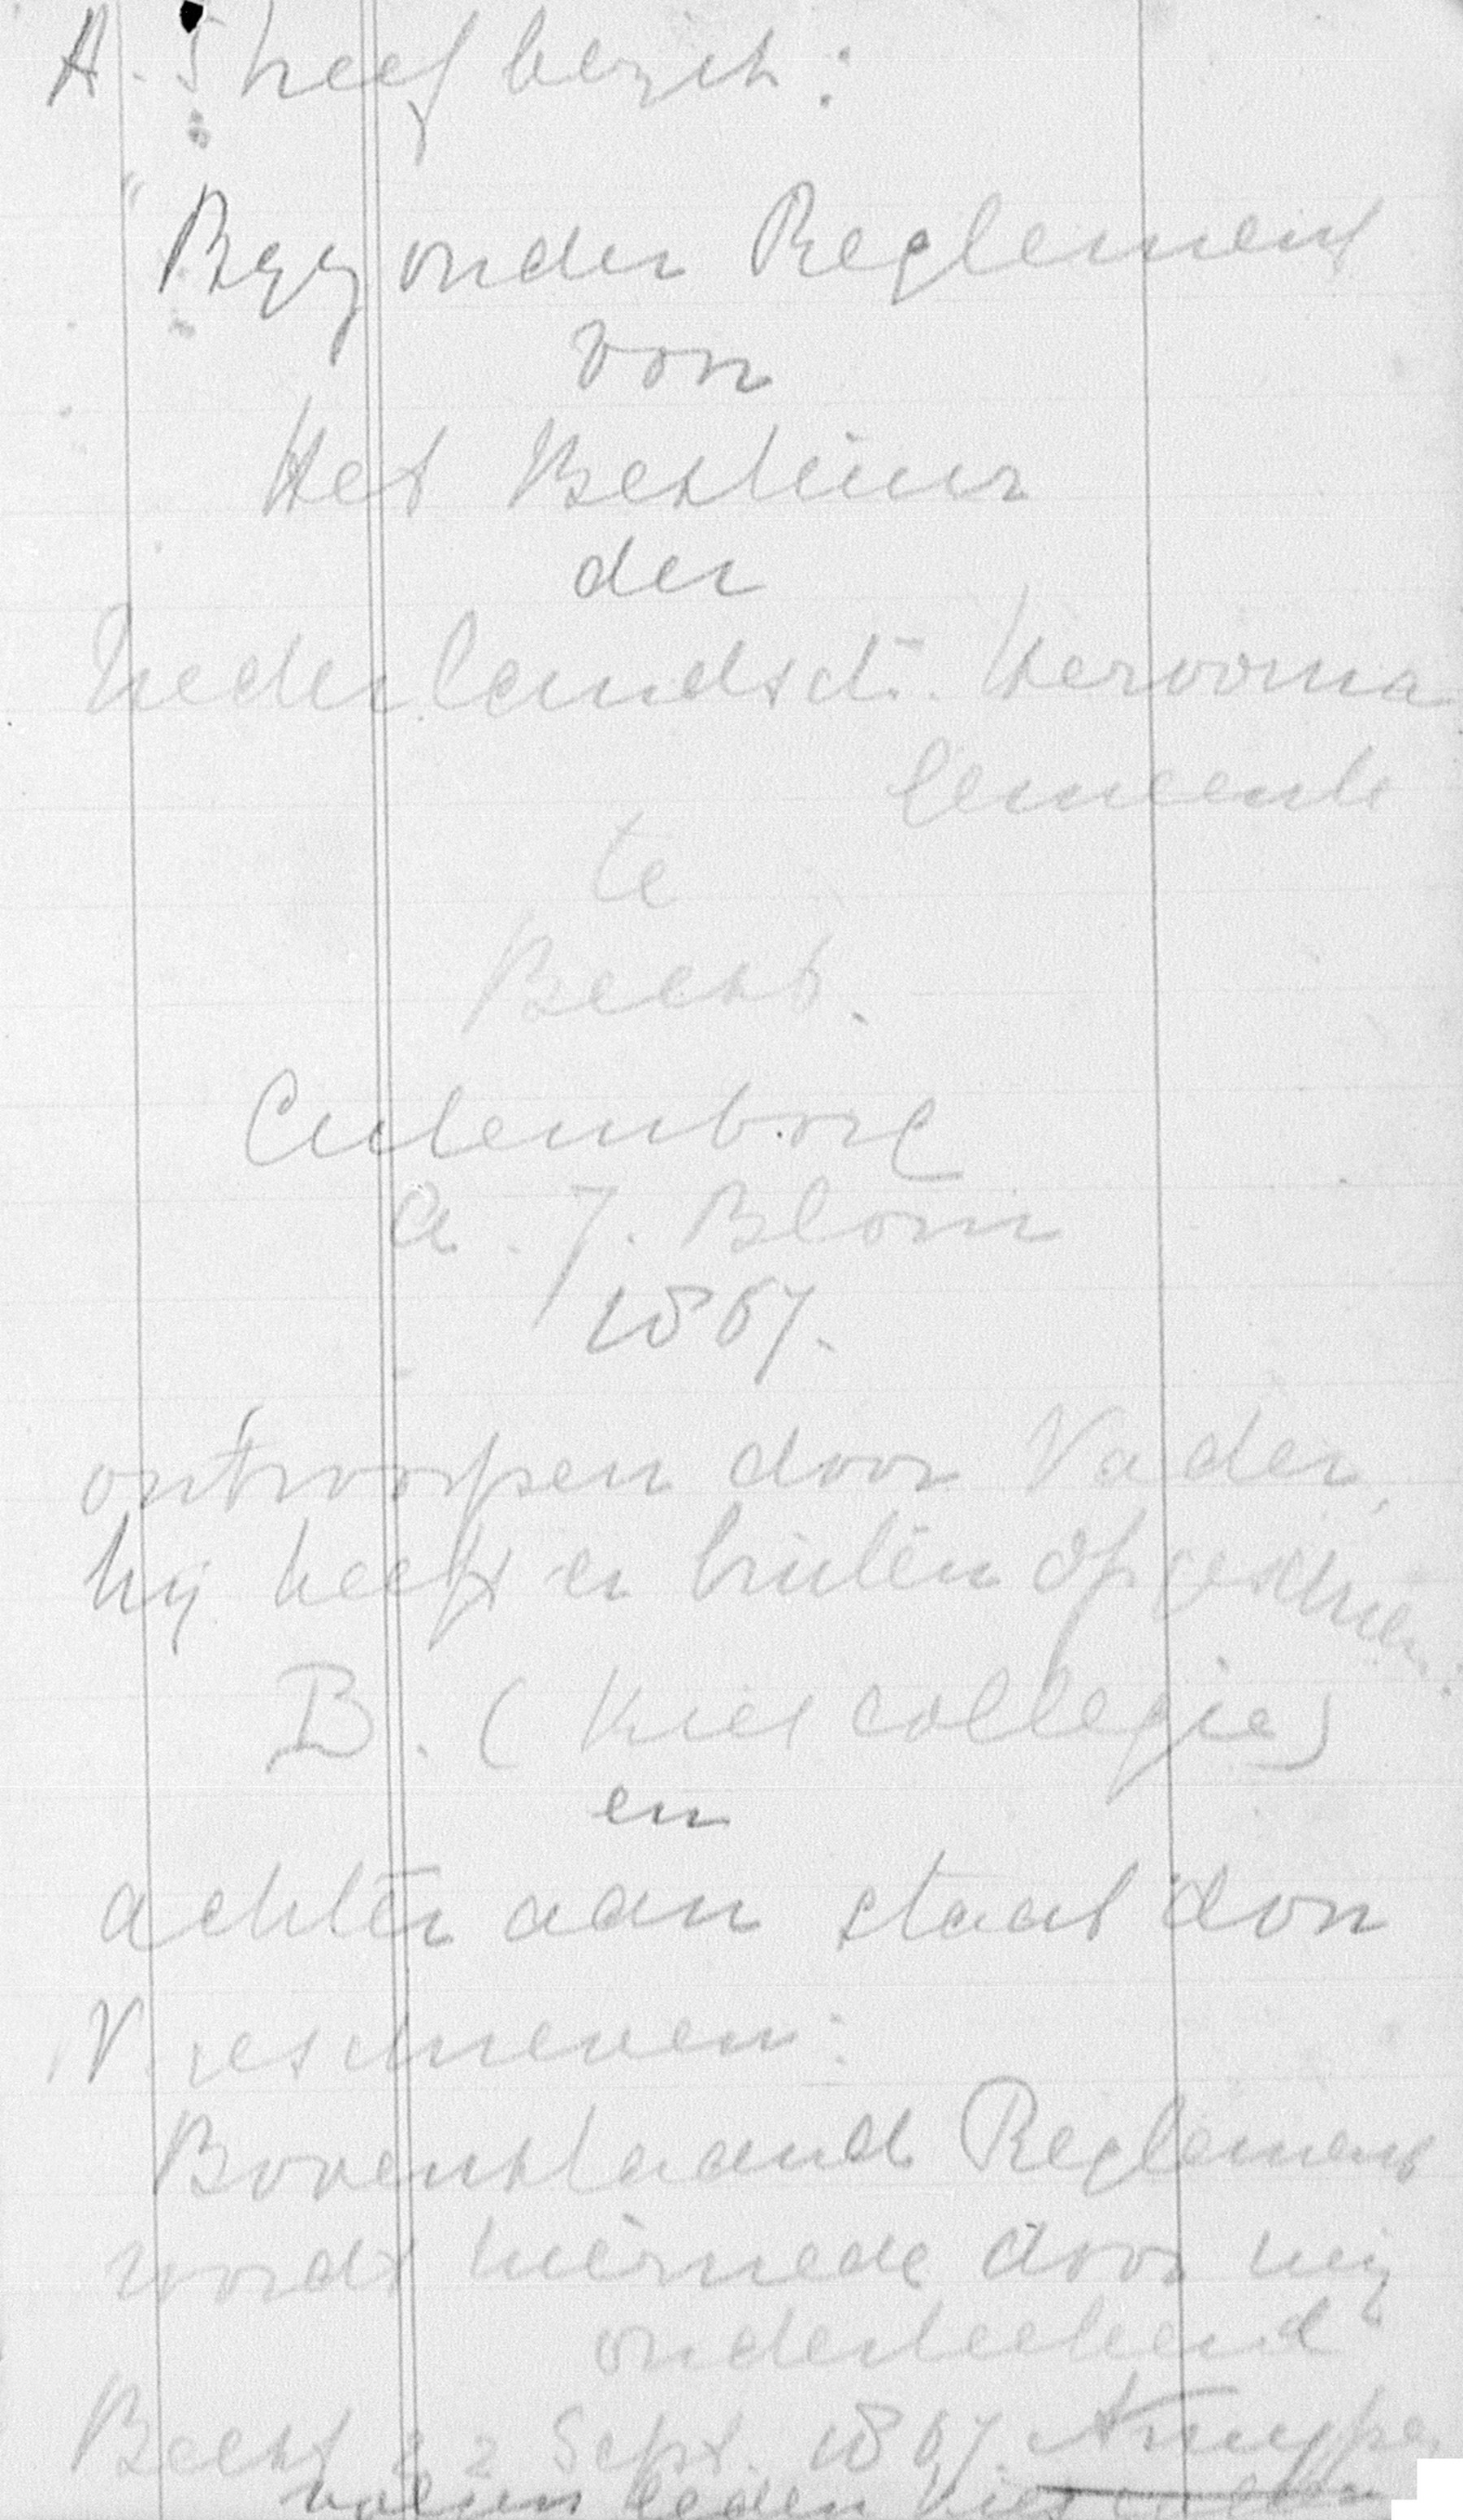 A. S heef bezit:
"Byzonder Reglement
von
Het Bestuur
der
Nederlandsch. Hervormd
Gemeente
te
Beest.
Culemborg
A. J. Blom
1867.
ontworpen door Vader,
hij heeft er buiten opgeschreven:
B. (Kiescollegie)
en
achter aan staat don
V. geschreven:
Bovenstaand Reglement
wordt hiermede door mij
onderteekend
Beest 22 Sept. 1867. AKuyper
leden